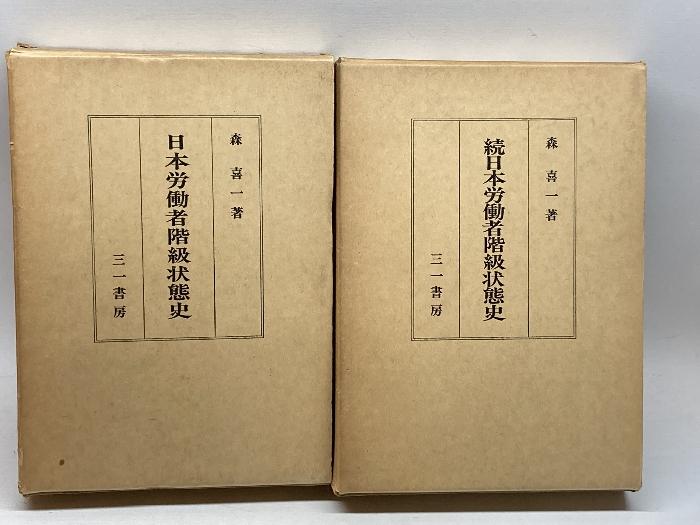 森 喜一 著
日本労働者階級状態史
三一書房
森 喜一 著
続日本労働者階級状態史
三一書房